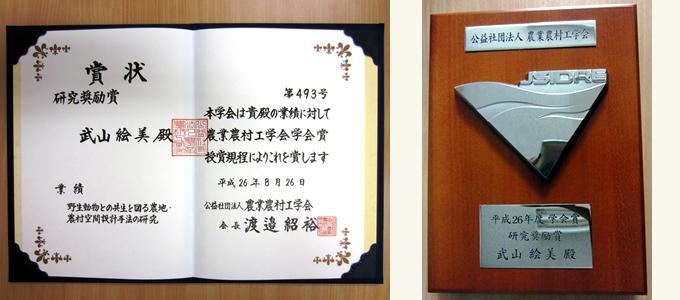 賞状
研究奨励賞
武山絵美殿
業績
野生動物との共生を図る農地・
農村空間設計手法の研究
第493号
本学会は貴殿の業績に対して
農業農村工学会学会賞
授賞規程によりこれを賞します
平成26年8月26日
公益社団法人農業農村工学会
会長 渡邉紹裕
公益社団法人 農業農村工学会
JSIDRE
平成26年度 学会賞
研究奨励賞
武山絵美殿